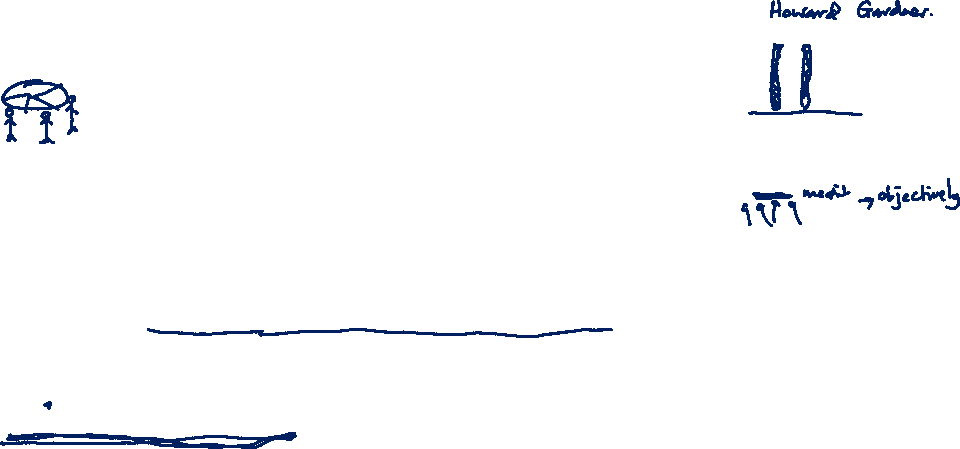 Howard Gardner.
merit → objectively